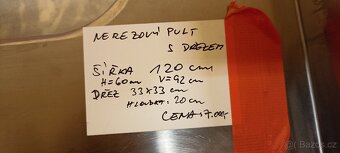 NEREZOVÝ PULT
S DŘEZEM
ŠÍŘKA 120 cm
H=60cm V=92cm
DŘEZ 33x33 cm
HLOUBKA: 20cm
CENA: 7.000,-
Bazoš.cz